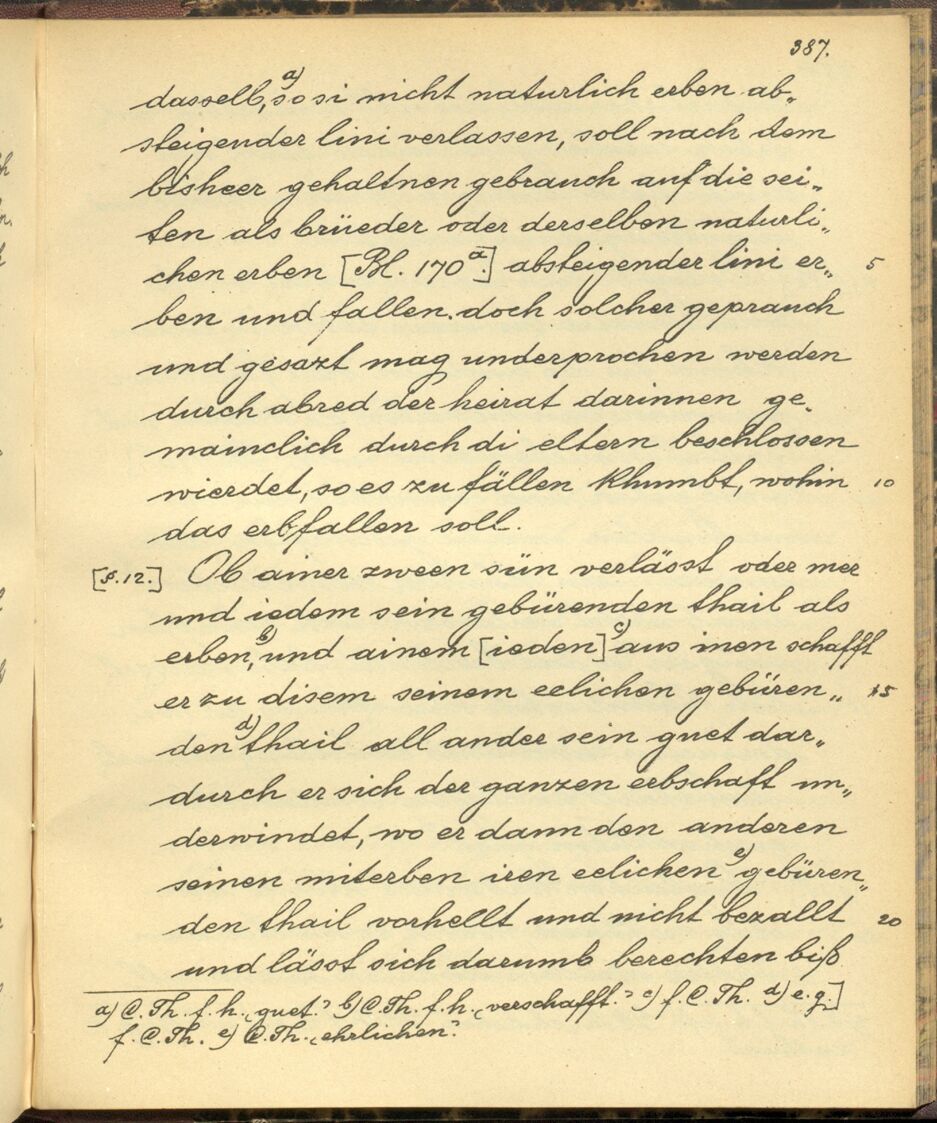 387.
dasselb, a) so si nicht naturlich erben ab„
steigender lini verlassen, soll nach dem
bisheer gehaltnen gebrauch auf die sei„
ten als brüeder oder derselben naturli„
chen erben [Bl. 170 a.] absteigender lini er„ 5
ben und fallen. doch solcher geprauch
und gesazt mag underprochen werden
durch abred der heirat darinnen ge„
mainclich durch di eltern beschlossen
wierdet, so es zu fällen khumbt, wohin 10
das erb fallen soll.
[§. 12.] Ob ainer zween sün verlässt oder mer
und iedem sein gebürenden thail als
erben, b) und ainem [ieden] c) aus inen schafft
er zu disem seinem eelichen gebüren„ 15
den d) thail all ander sein guet dar„
durch er sich der ganzen erbschaft un„
derwindet, wo er dann den anderen
seinen miterben iren eelichen e) gebüren„
den thail vorhellt und nicht bezallt 20
und lässt sich darumb berechten biß
a) C. Th. f. h. „guet.“ b) C. Th. f. h. „verschafft.“ c) f. C. Th. d) e. g.]
f. C. Th. e) C. Th. „ehrlichen“.